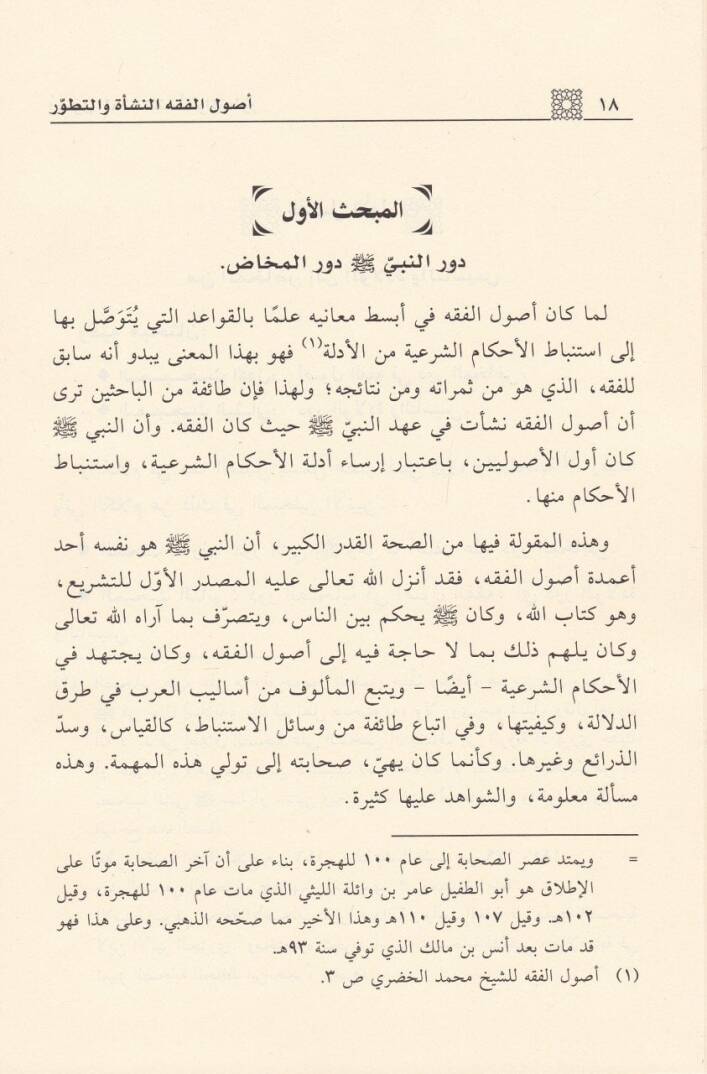 ١٨ أصول الفقه النشأة والتطوّر
المبحث الأول
دور النبيّ ﷺ دور المخاض.
لما كان أصول الفقه في أبسط معانيه علمًا بالقواعد التي يُتَوَصَّل بها
إلى استنباط الأحكام الشرعية من الأدلة(١) فهو بهذا المعنى يبدو أنه سابق
للفقه، الذي هو من ثمراته ومن نتائجه؛ ولهذا فإن طائفة من الباحثين ترى
أن أصول الفقه نشأت في عهد النبيّ ﷺ حيث كان الفقه. وأن النبي ﷺ
كان أول الأصوليين، باعتبار إرساء أدلة الأحكام الشرعية، واستنباط
الأحكام منها.
وهذه المقولة فيها من الصحة القدر الكبير، أن النبي ﷺ هو نفسه أحد
أعمدة أصول الفقه، فقد أنزل الله تعالى عليه المصدر الأوّل للتشريع،
وهو كتاب الله، وكان ﷺ يحكم بين الناس، ويتصرّف بما آراه الله تعالى
وكان يلهم ذلك بما لا حاجة فيه إلى أصول الفقه، وكان يجتهد في
الأحكام الشرعية - أيضًا - ويتبع المألوف من أساليب العرب في طرق
الدلالة، وكيفيتها، وفي اتباع طائفة من وسائل الاستنباط، كالقياس، وسدّ
الذرائع وغيرها. وكأنما كان يهيّ، صحابته إلى تولي هذه المهمة. وهذه
مسألة معلومة، والشواهد عليها كثيرة.
= ويمتد عصر الصحابة إلى عام ١٠٠ للهجرة، بناء على أن آخر الصحابة موتًا على
الإطلاق هو أبو الطفيل عامر بن واثلة الليثي الذي مات عام ١٠٠ للهجرة، وقيل
١٠٢هـ. وقيل ١٠٧ وقيل ١١٠هـ وهذا الأخير مما صحّحه الذهبي. وعلى هذا فهو
قد مات بعد أنس بن مالك الذي توفي سنة ٩٣هـ.
(١) أصول الفقه للشيخ محمد الخضري ص ٣.